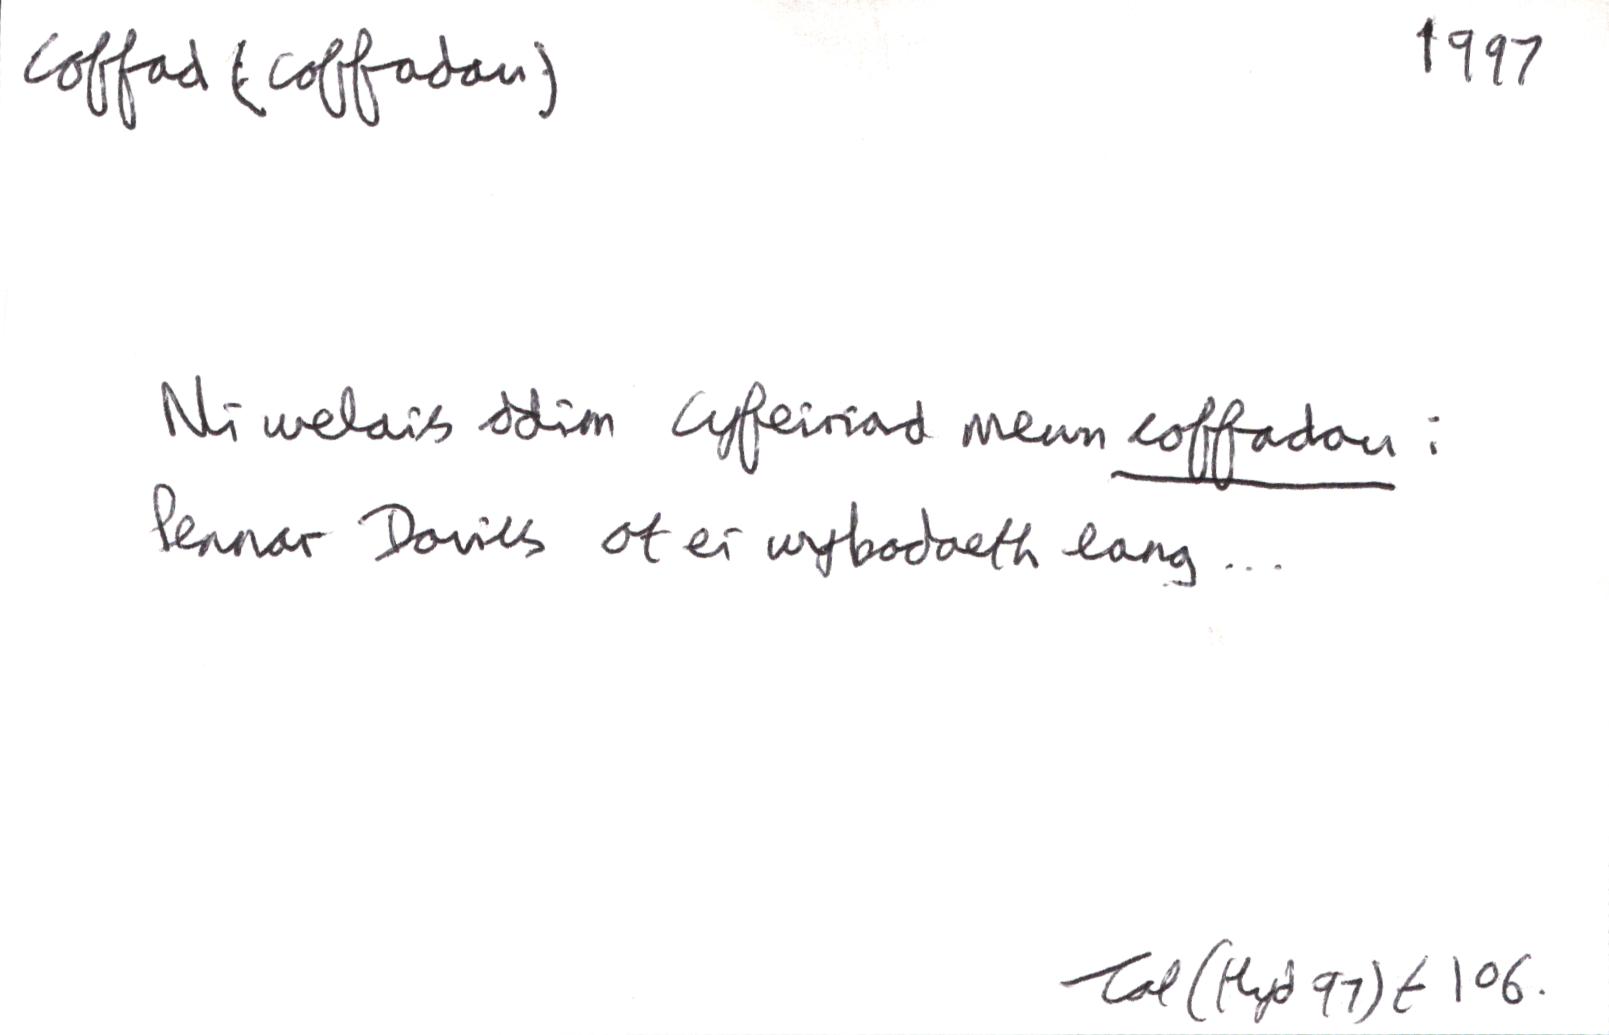 coffad (coffadau)
1997
Ni welais ddim cyfeiriad mewn coffadau i
Pennar Davies at ei wybodaeth eang ...
Tal (Hyd 97) t 106.